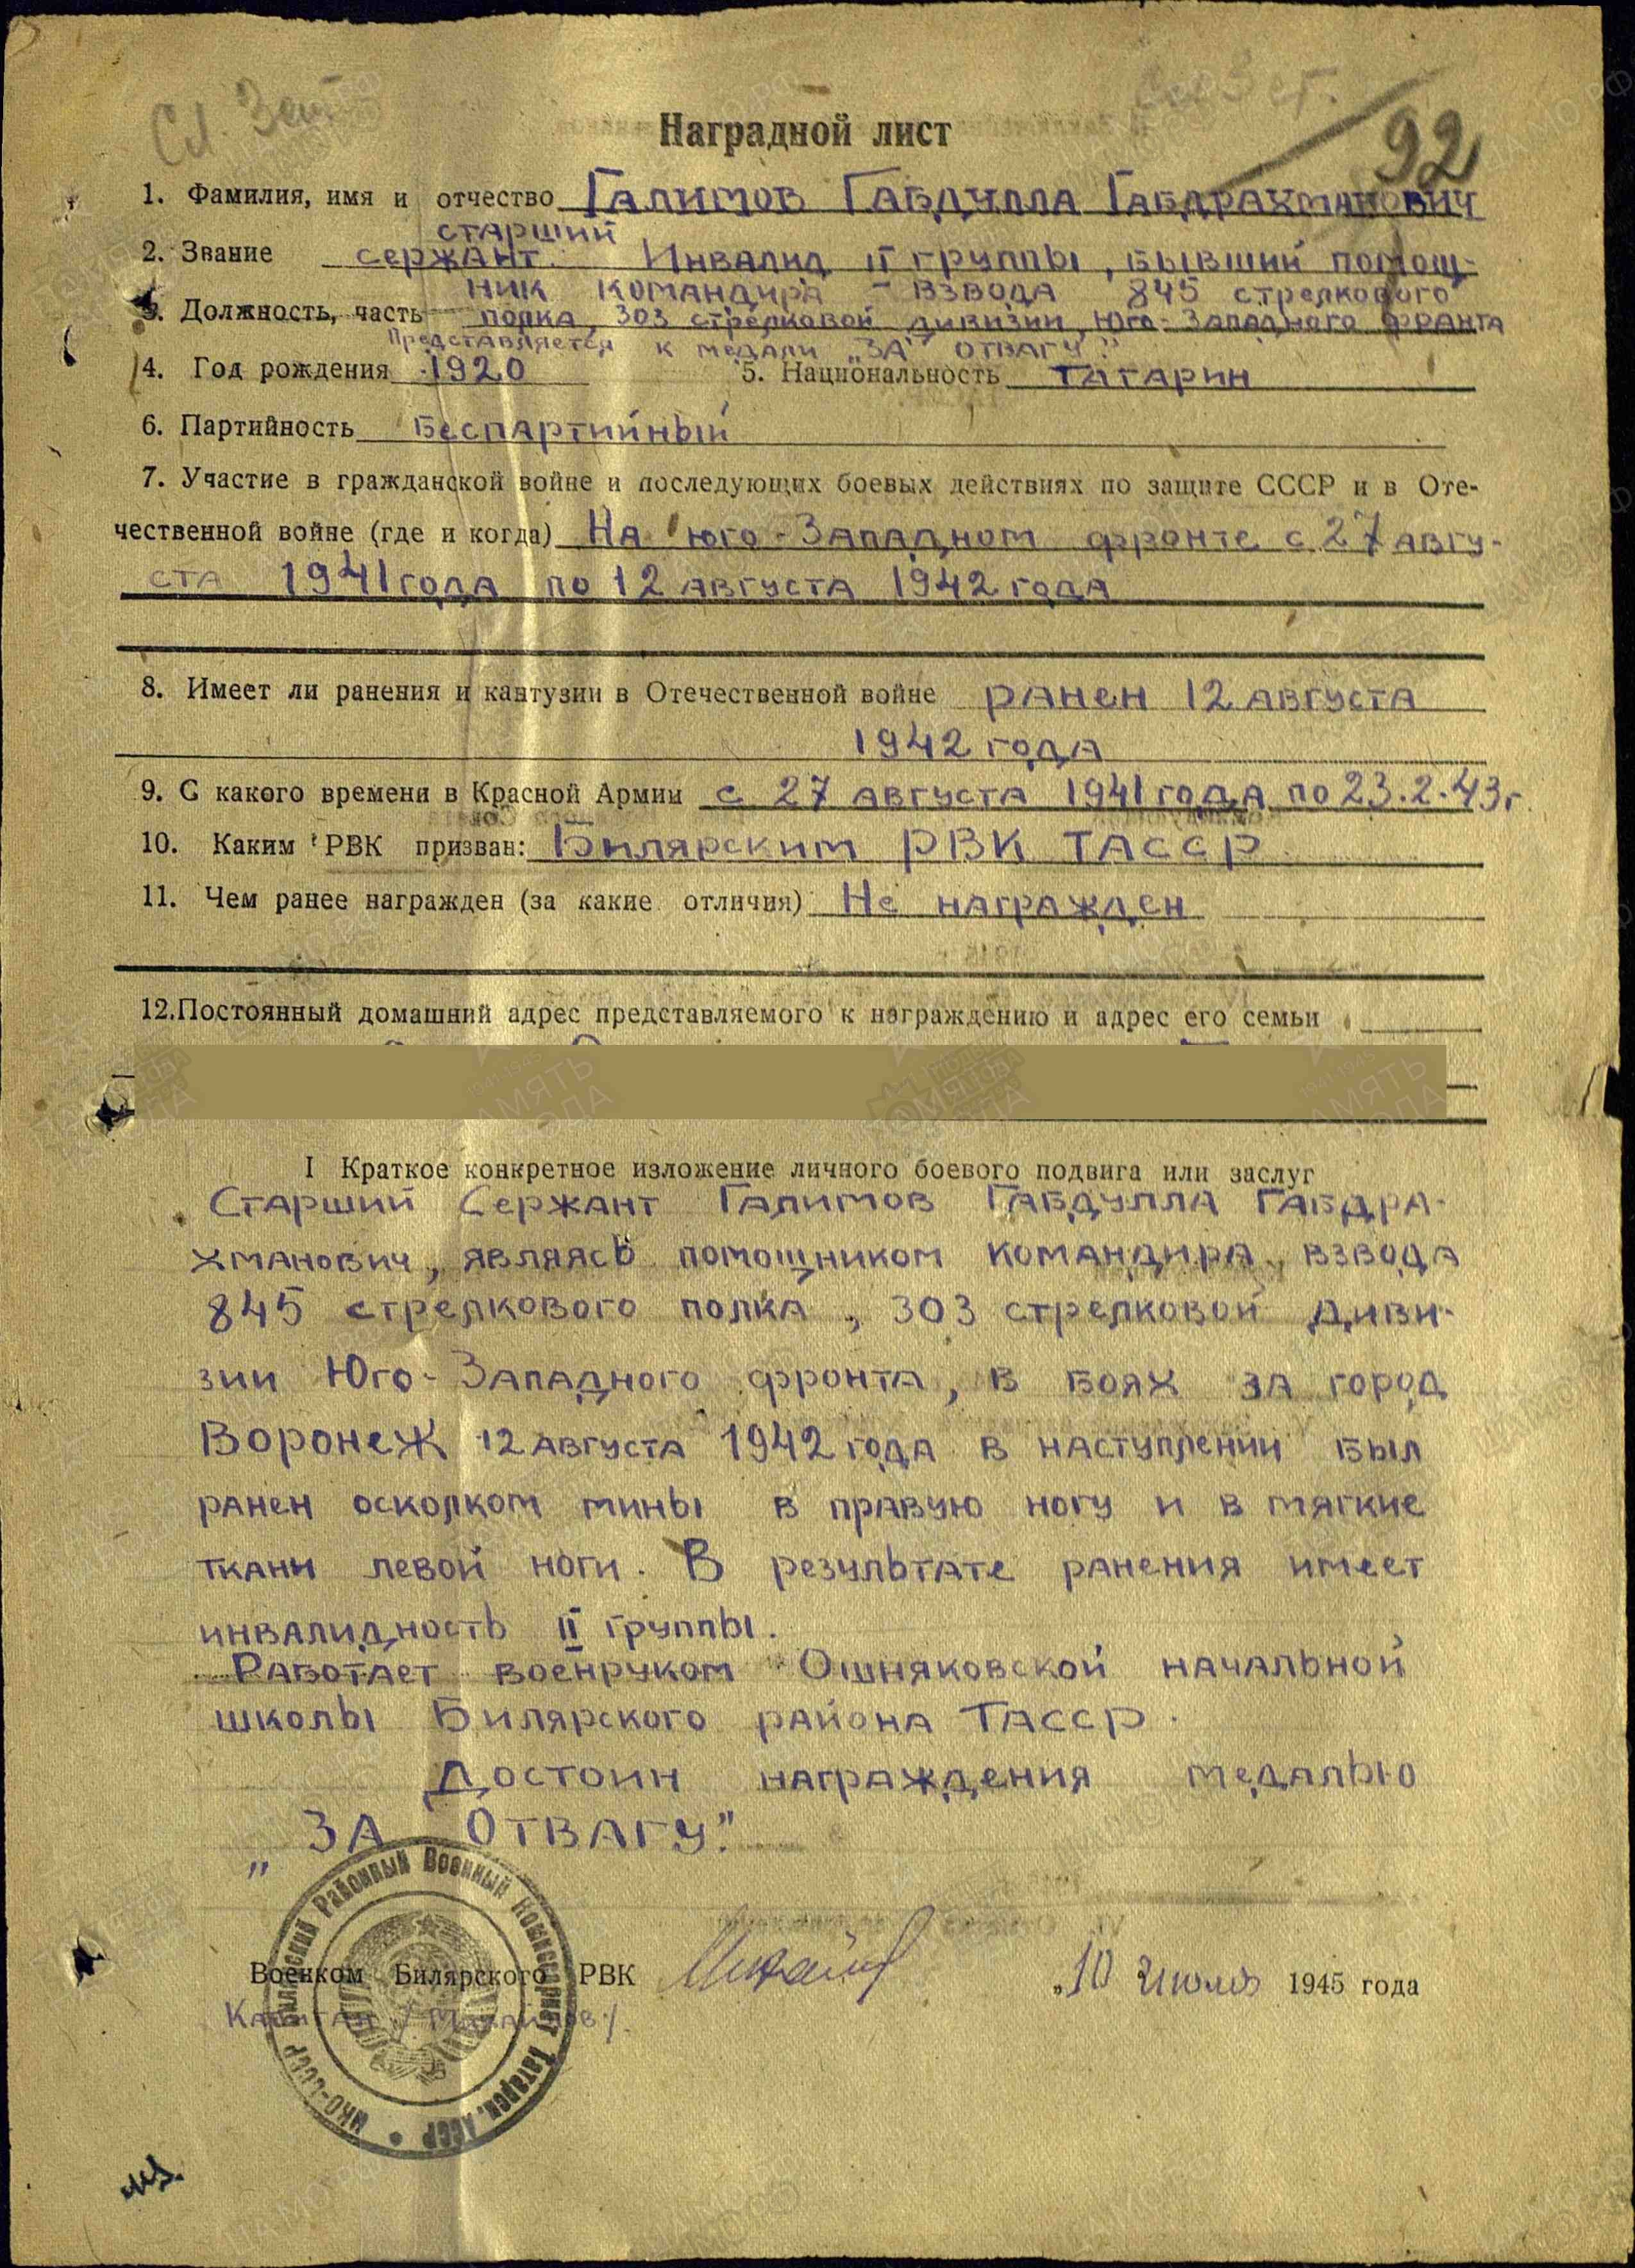 Сл. 3 ст.
92
Наградной лист
1. Фамилия, имя и отчество Галимов Габдулла Габдрахманович
старший
2. Звание сержант. Инвалид II группы, бывший помощ-
ник командира - взвода 845 стрелкового
3. Должность, часть полка, 303 стрелковой дивизии, Юго-Западного фронта
Представляется к медали „За отвагу".
4. Год рождения 1920 5. Национальность татарин
6. Партийность Беспартийный
7. Участие в гражданской войне и последующих боевых действиях по защите СССР и в Оте-
чественной войне (где и когда) На Юго-Западном фронте с 27 авгу-
ста 1941 года по 12 августа 1942 года
8. Имеет ли ранения и кантузии в Отечественной войне ранен 12 августа
1942 года
9. С какого времени в Красной Армии с 27 августа 1941 года по 23.2.43г.
10. Каким РВК призван: Билярским РВК ТАССР
11. Чем ранее награжден (за какие отличия) Не награжден
12. Постоянный домашний адрес представляемого к награждению и адрес его семьи
I Краткое конкретное изложение личного боевого подвига или заслуг
Старший Сержант Галимов Габдулла Габдра-
хманович, являясь помощником командира взвода
845 стрелкового полка, 303 стрелковой диви-
зии Юго-Западного фронта, в боях за город
Воронеж 12 августа 1942 года в наступлении был
ранен осколком мины в правую ногу и в мягкие
ткани левой ноги. В результате ранения имеет
инвалидность II группы.
Работает военруком Ошняковской начальной
школы Билярского района ТАССР.
Достоин награждения медалью
„За отвагу".
Военком Билярского РВК „10 июля 1945 года
Капитан /Михайлов/.
НКО-СССР Билярский Районный Военный Комиссариат Татарск. АССР